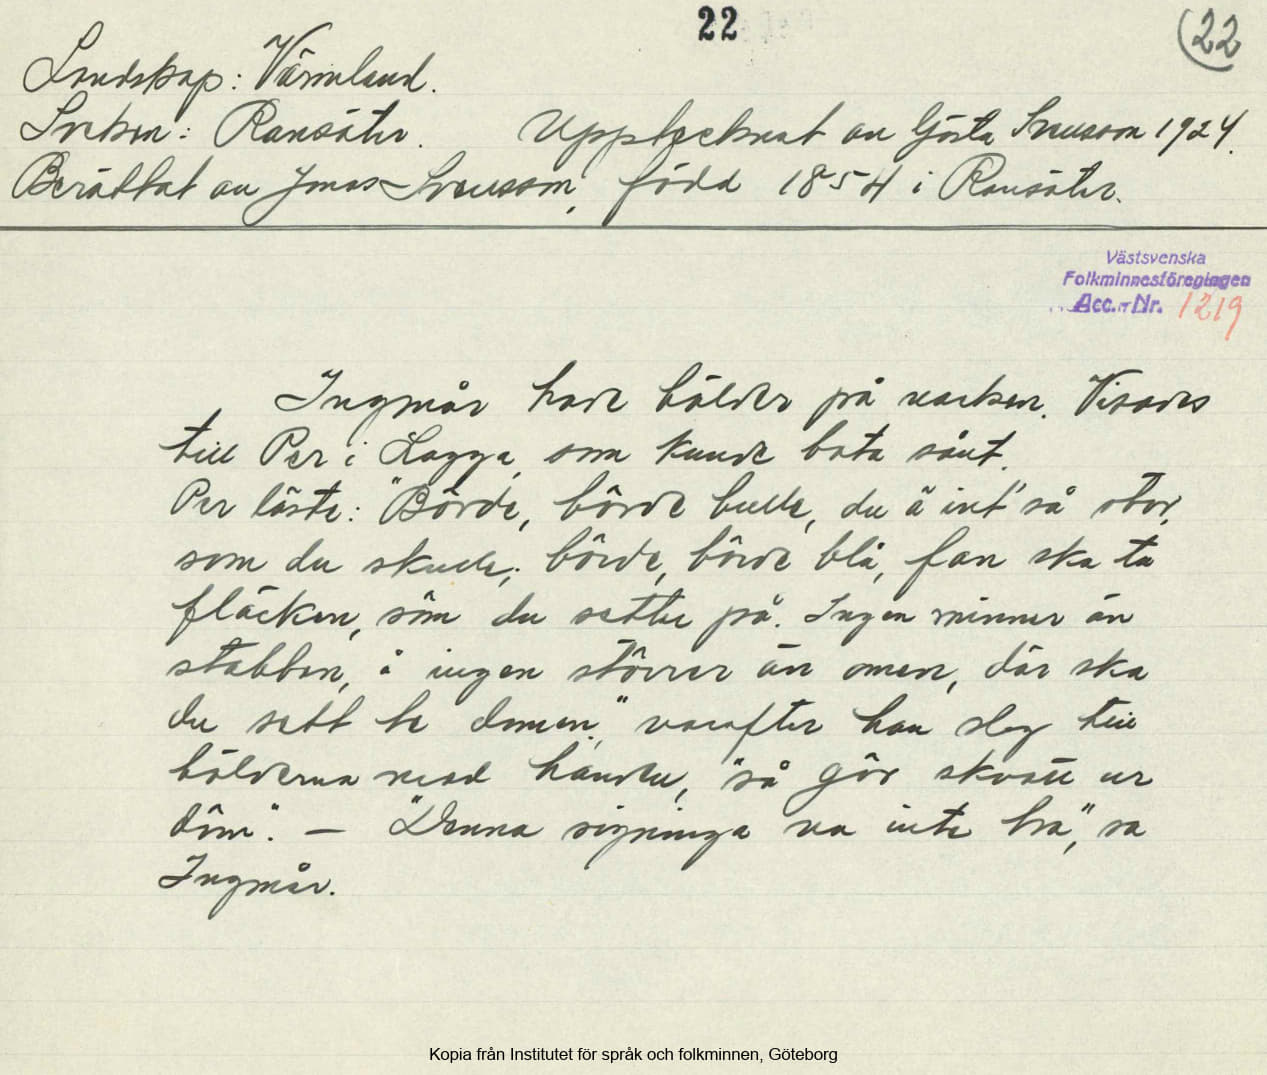 22
(22
Landskap: Värmland.
Socken: Ransäter. Upptecknat av Gösta Svensson 1924.
Berättat av Jonas Svensson, född 1854 i Ransäter.
Västsvenska
Folkminnesföreningen
Acc. Nr. 1219
Ingmår hade bölder på nacken. Visades
till Per i Lagga, som kunde bota sånt.
Per läste: "Börde, börde bulle, du ä int' så stor,
som du skulle; börde, börde blå, fan ska ta
fläcken, söm du setter på. Ingen minner än
stabben, å ingen störrer än omen, där ska
du sett te domen.", varefter han slog till
bölderna med handen, "så gör skvatt ur
döm". — "Denna signinga va inte bra", sa
Ingmår.
Kopia från Institutet för språk och folkminnen, Göteborg